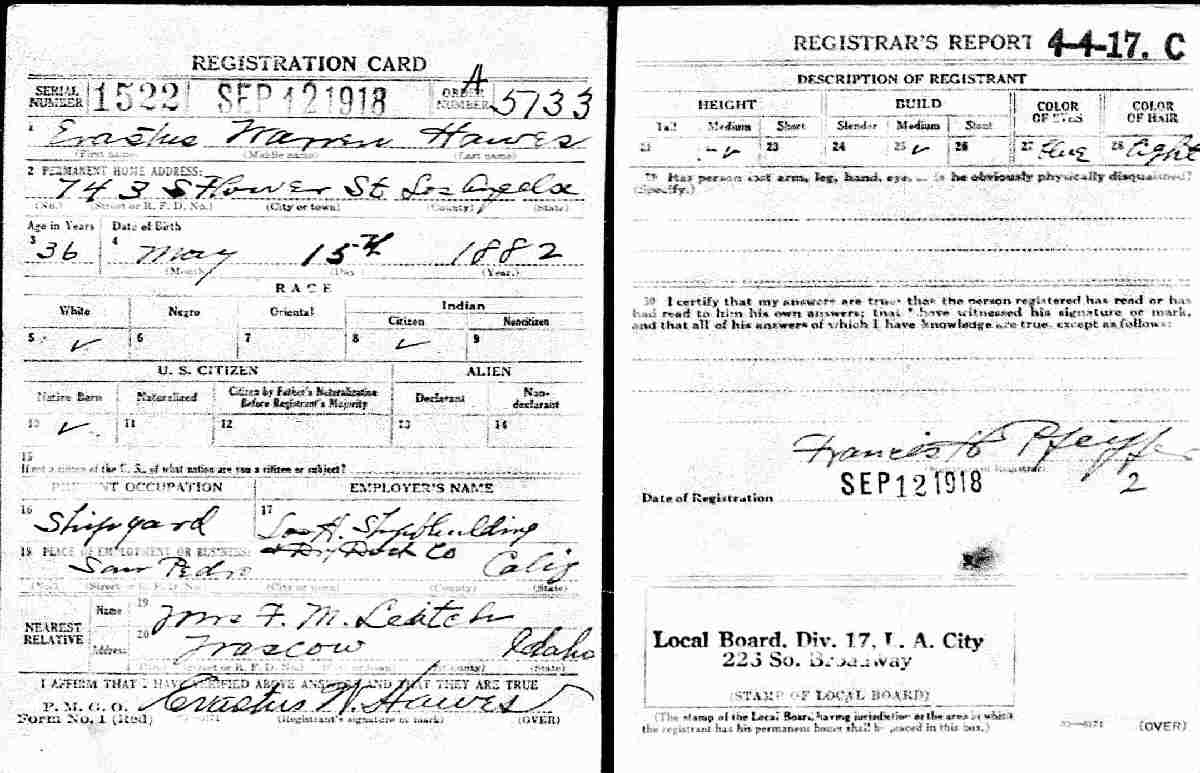 REGISTRATION CARD
SERIAL NUMBER 1522 SEP 12 1918 ORDER NUMBER A 5733
1 Erastus Warren Hawes
(First name) (Middle name) (Last name)
2 PERMANENT HOME ADDRESS:
743 S Flower St. Los Angeles
(No.) (Street or R. F. D. No.) (City or town) (County) (State)
Age in Years Date of Birth
3 36 4 May 15th 1882
(Month) (Day) (Year.)
RACE
White Negro Oriental Indian
Citizen Noncitizen
5 ✓ 6 7 8 ✓ 9
U. S. CITIZEN ALIEN
Native Born Naturalized Citizen by Father's Naturalization Before Registrant's Majority Declarant Non-declarant
10 ✓ 11 12 13 14
15
If not a citizen of the U. S., of what nation are you a citizen or subject?
OCCUPATION EMPLOYER'S NAME
16 Shipyard 17 Los A. Shipbuilding
& Dry Dock Co
18 PLACE OF EMPLOYMENT OR BUSINESS:
San Pedro Calif
(No.) (Street or R. F. D. No.) (City or town) (County) (State)
NEAREST RELATIVE
Name 19 Mrs F. M. Leatch
Address 20 Moscow Idaho
(No.) (Street or R. F. D. No.) (City or town) (County) (State)
I AFFIRM THAT I HAVE VERIFIED ABOVE ANSWERS AND THAT THEY ARE TRUE
P. M. G. O.
Form No. 1 (Red) Erastus W. Hawes
(Registrant's signature or mark) (OVER)
REGISTRAR'S REPORT 4-4-17. C
DESCRIPTION OF REGISTRANT
HEIGHT BUILD COLOR OF EYES COLOR OF HAIR
Tall Medium Short Slender Medium Stout
21 ✓ 23 24 25 ✓ 26 27 Blue 28 Light
29 Has person lost arm, leg, hand, eye, or is he obviously physically disqualified?
(Specify.)
30 I certify that my answers are true; that the person registered has read or has
had read to him his own answers; that I have witnessed his signature or mark,
and that all of his answers of which I have knowledge are true, except as follows:
Francis H Pfeiff
(Signature of Registrar)
Date of Registration SEP 12 1918 2
Local Board, Div. 17, L. A. City
223 So. Broadway
(STAMP OF LOCAL BOARD)
(The stamp of the Local Board having jurisdiction of the area in which
the registrant has his permanent home shall be placed in this box.)
(OVER)